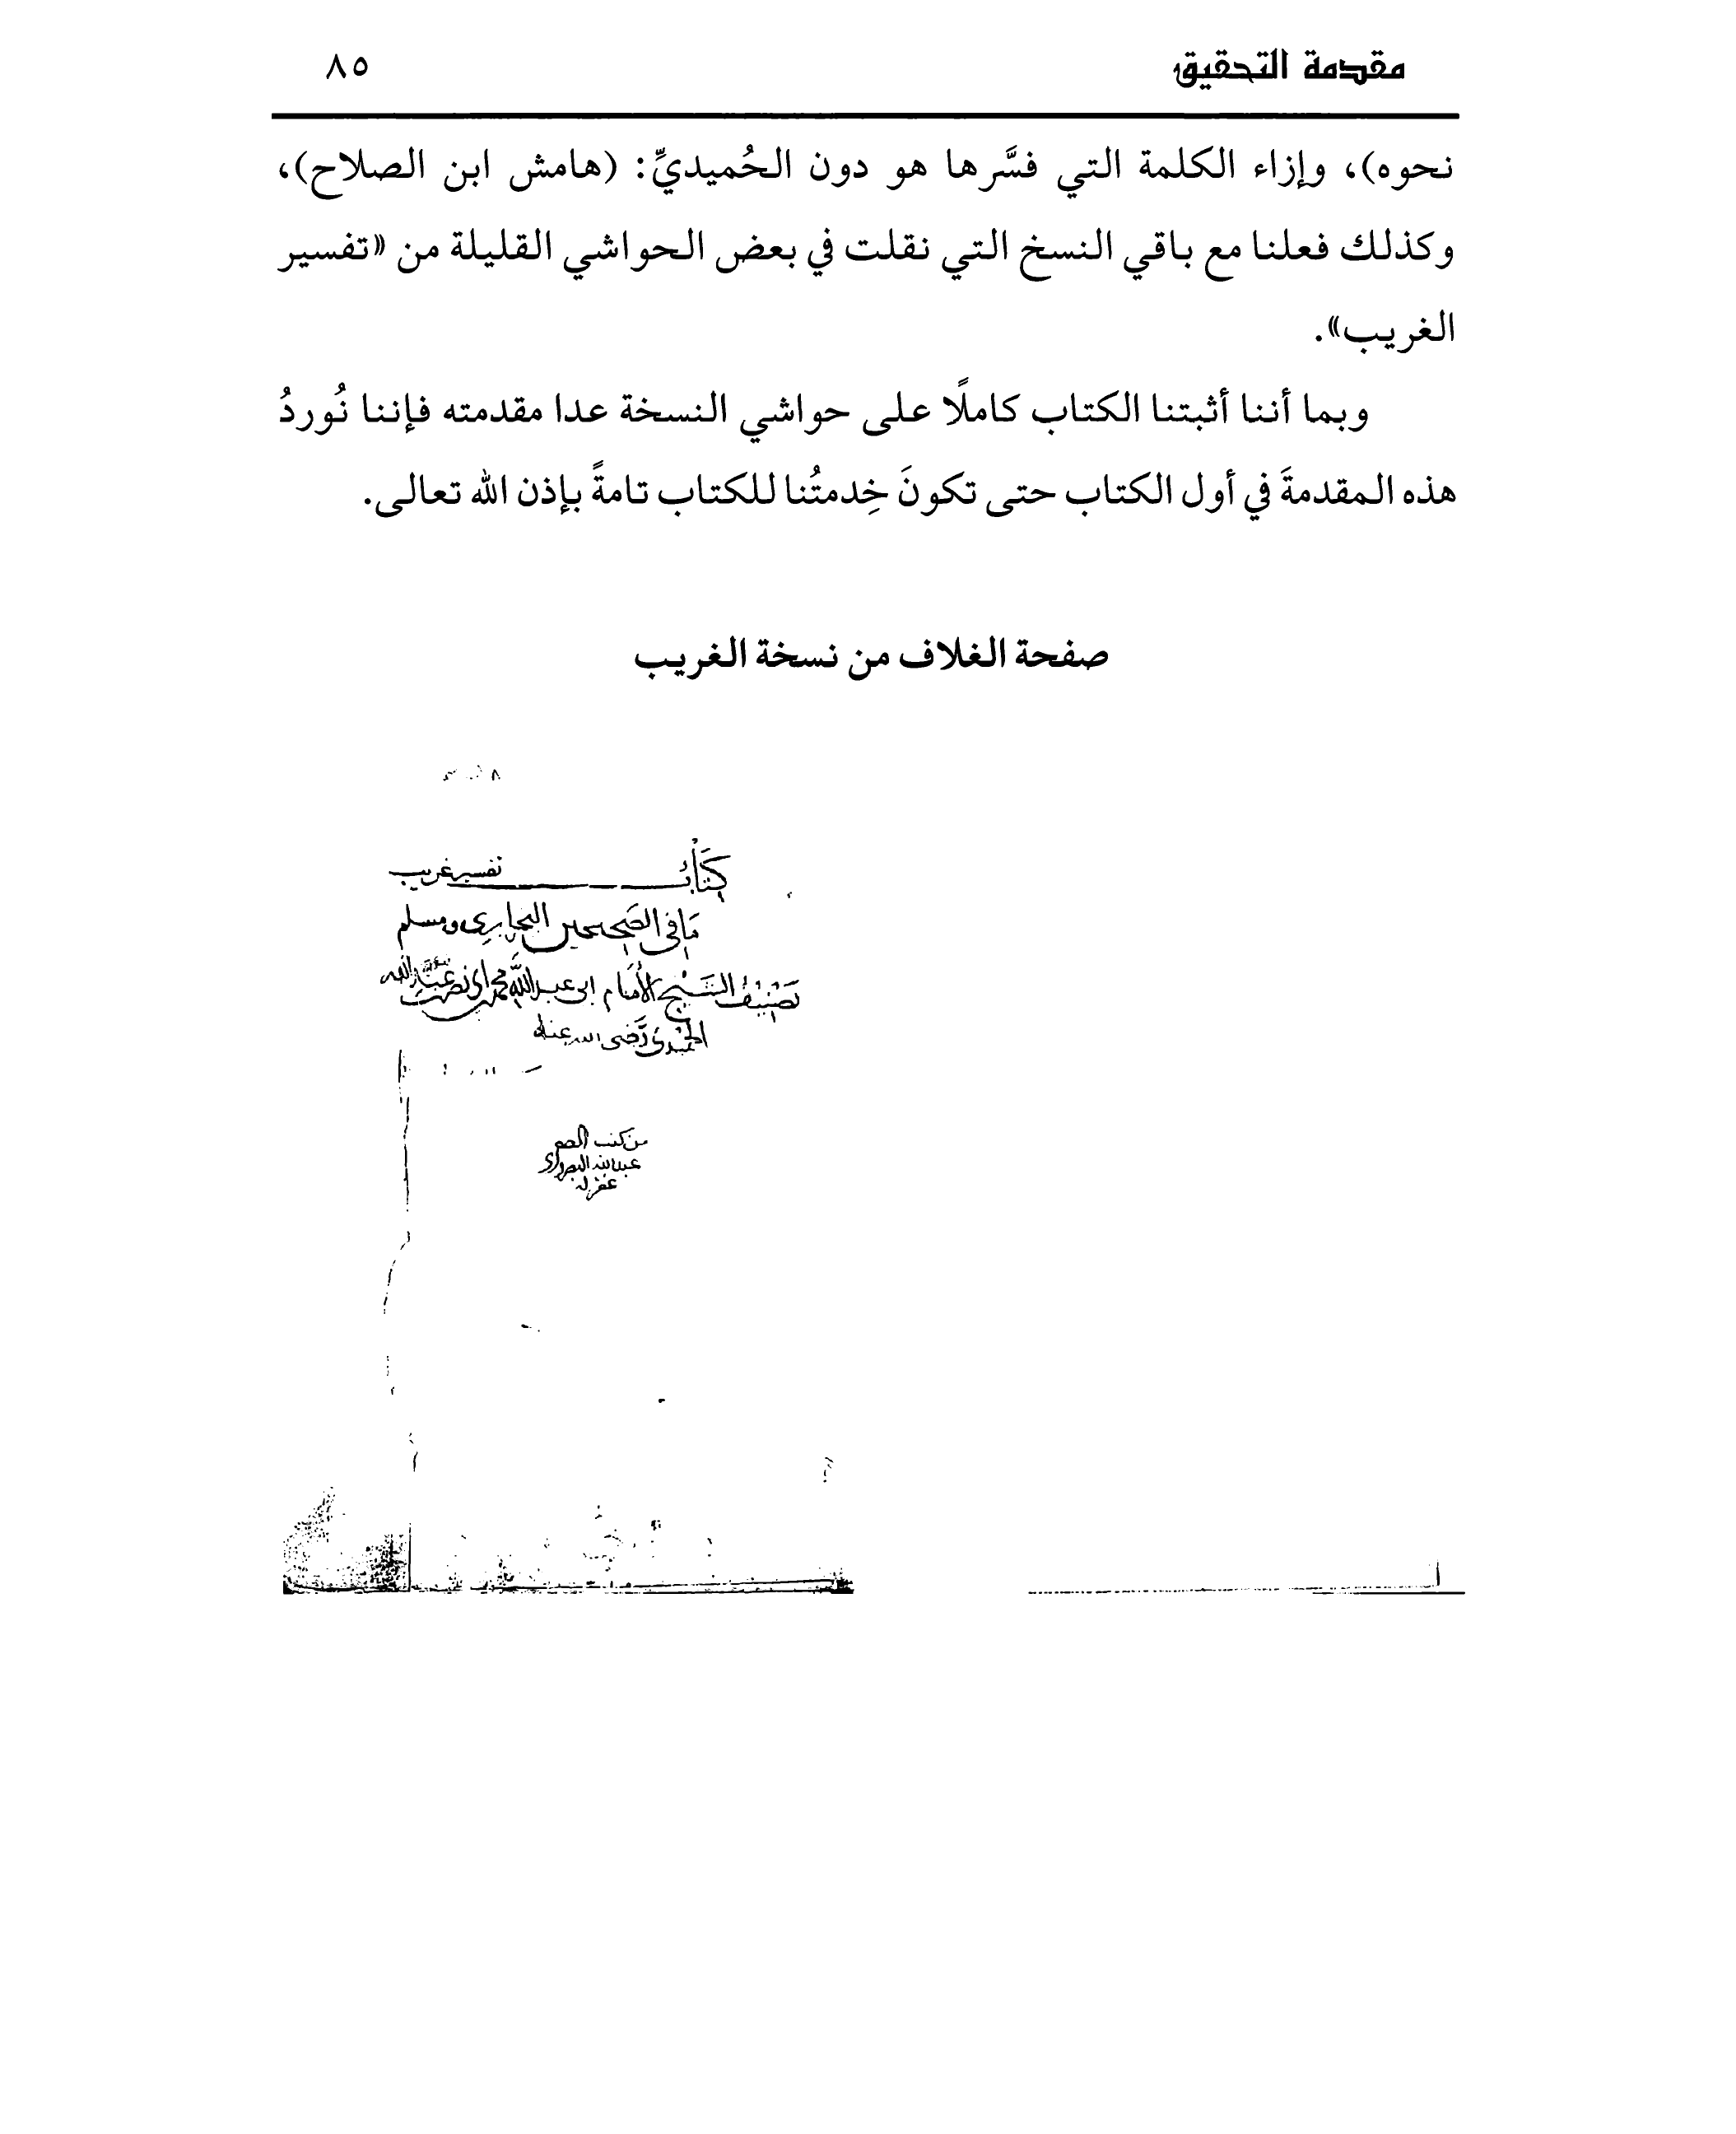 مقدمة التحقيق ٨٥
نحوه)، وإزاء الكلمة التي فسَّرها هو دون الحُميديِّ: (هامش ابن الصلاح)،
وكذلك فعلنا مع باقي النسخ التي نقلت في بعض الحواشي القليلة من «تفسير
الغريب».
وبما أننا أثبتنا الكتاب كاملًا على حواشي النسخة عدا مقدمته فإننا نُوردُ
هذه المقدمةَ في أول الكتاب حتى تكونَ خِدمتُنا للكتاب تامةً بإذن الله تعالى.
صفحة الغلاف من نسخة الغريب
كتاب تفسير غريب
ما في الصحيحين البخاري ومسلم
تصنيف الشيخ الامام ابى عبد الله محمد ابن ابى نصر
الحميدى رضى الله عنه
من كتب
عبد الله
غفر له